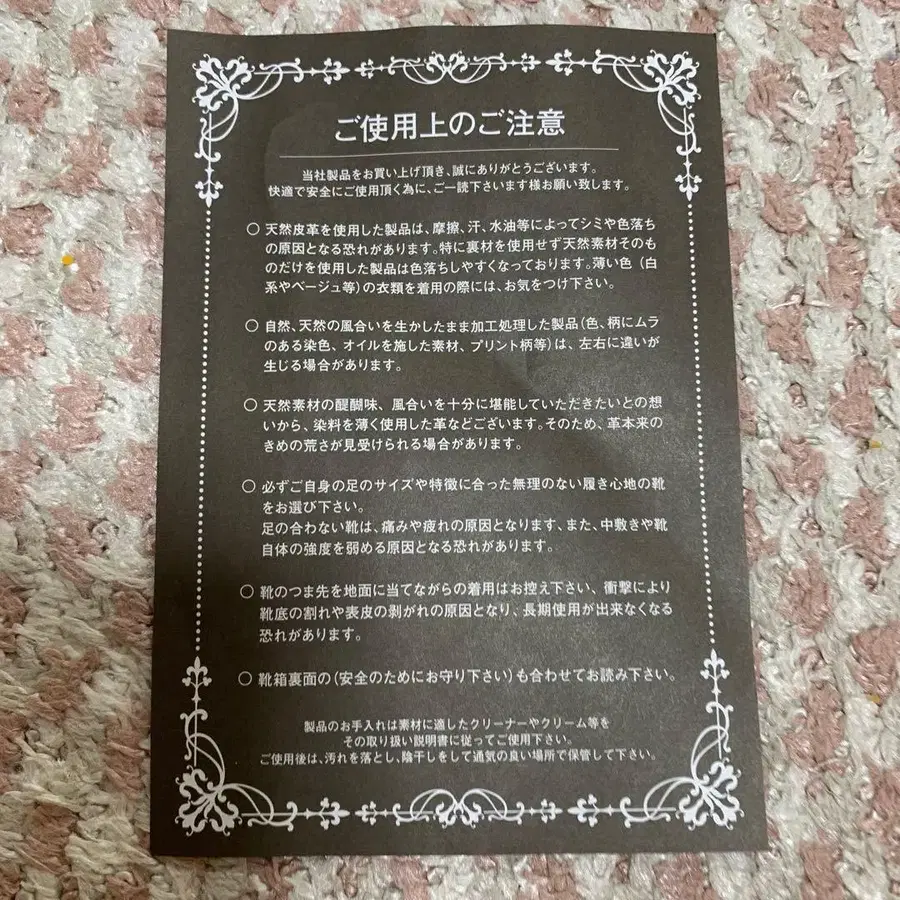 ご使用上のご注意
当社製品をお買い上げ頂き、誠にありがとうございます。
快適で安全にご使用頂く為に、ご一読下さいます様お願い致します。
○ 天然皮革を使用した製品は、摩擦、汗、水油等によってシミや色落ち
の原因となる恐れがあります。特に裏材を使用せず天然素材そのも
のだけを使用した製品は色落ちしやすくなっております。薄い色（白
系やベージュ等）の衣類を着用の際には、お気をつけ下さい。
○ 自然、天然の風合いを生かしたまま加工処理した製品（色、柄にムラ
のある染色、オイルを施した素材、プリント柄等）は、左右に違いが
生じる場合があります。
○ 天然素材の醍醐味、風合いを十分に堪能していただきたいとの想
いから、染料を薄く使用した革などございます。そのため、革本来の
きめの荒さが見受けられる場合があります。
○ 必ずご自身の足のサイズや特徴に合った無理のない履き心地の靴
をお選び下さい。
足の合わない靴は、痛みや疲れの原因となります、また、中敷きや靴
自体の強度を弱める原因となる恐れがあります。
○ 靴のつま先を地面に当てながらの着用はお控え下さい、衝撃により
靴底の割れや表皮の剥がれの原因となり、長期使用が出来なくなる
恐れがあります。
○ 靴箱裏面の（安全のためにお守り下さい）も合わせてお読み下さい。
製品のお手入れは素材に適したクリーナーやクリーム等を
その取り扱い説明書に従ってご使用下さい。
ご使用後は、汚れを落とし、陰干しをして通気の良い場所で保管して下さい。